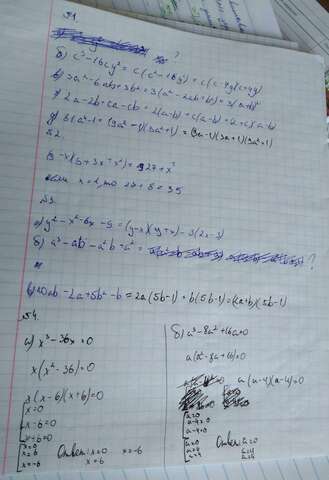 №1.
?
б) c³-16cy²= c(c²-16y²)=c(c-4y)(c+4y)
в) 3a²-6ab+3b²=3(a²-2ab+b²)=3(a-b)²
г) 2a-2b+ca-cb=2(a-b)+c(a-b)=(2+c)(a-b)
д) 81a⁴-1=(9a²-1)(9a²+1)=(3a-1)(3a+1)(9a²+1)
№2.
-x)(9+3x+x²)=27+x³
x=2, то 27+8=35
№3.
а) y²-x²-6x-9=(y-x)(y+x)-3(2x-3)
б) a³-ab-a²b+a²=
?
в) 10ab-2a+5b²-b=2a(5b-1)+b(5b-1)=(2a+b)(5b-1)
№4.
а) x³-36x=0
x(x²-36)=0
x(x-6)(x+6)=0
x=0
x-6=0
x+6=0
x=0
x=6
x=-6
Ответ: x=0 x=-6
x=6
б) a³-8a²+16a=0
a(a²-8a+16)=0
a(a-4)(a-4)=0
a=0
a-4=0
a-4=0
a=0
a=4
a=4
Ответ: a=0
a=4
a=4